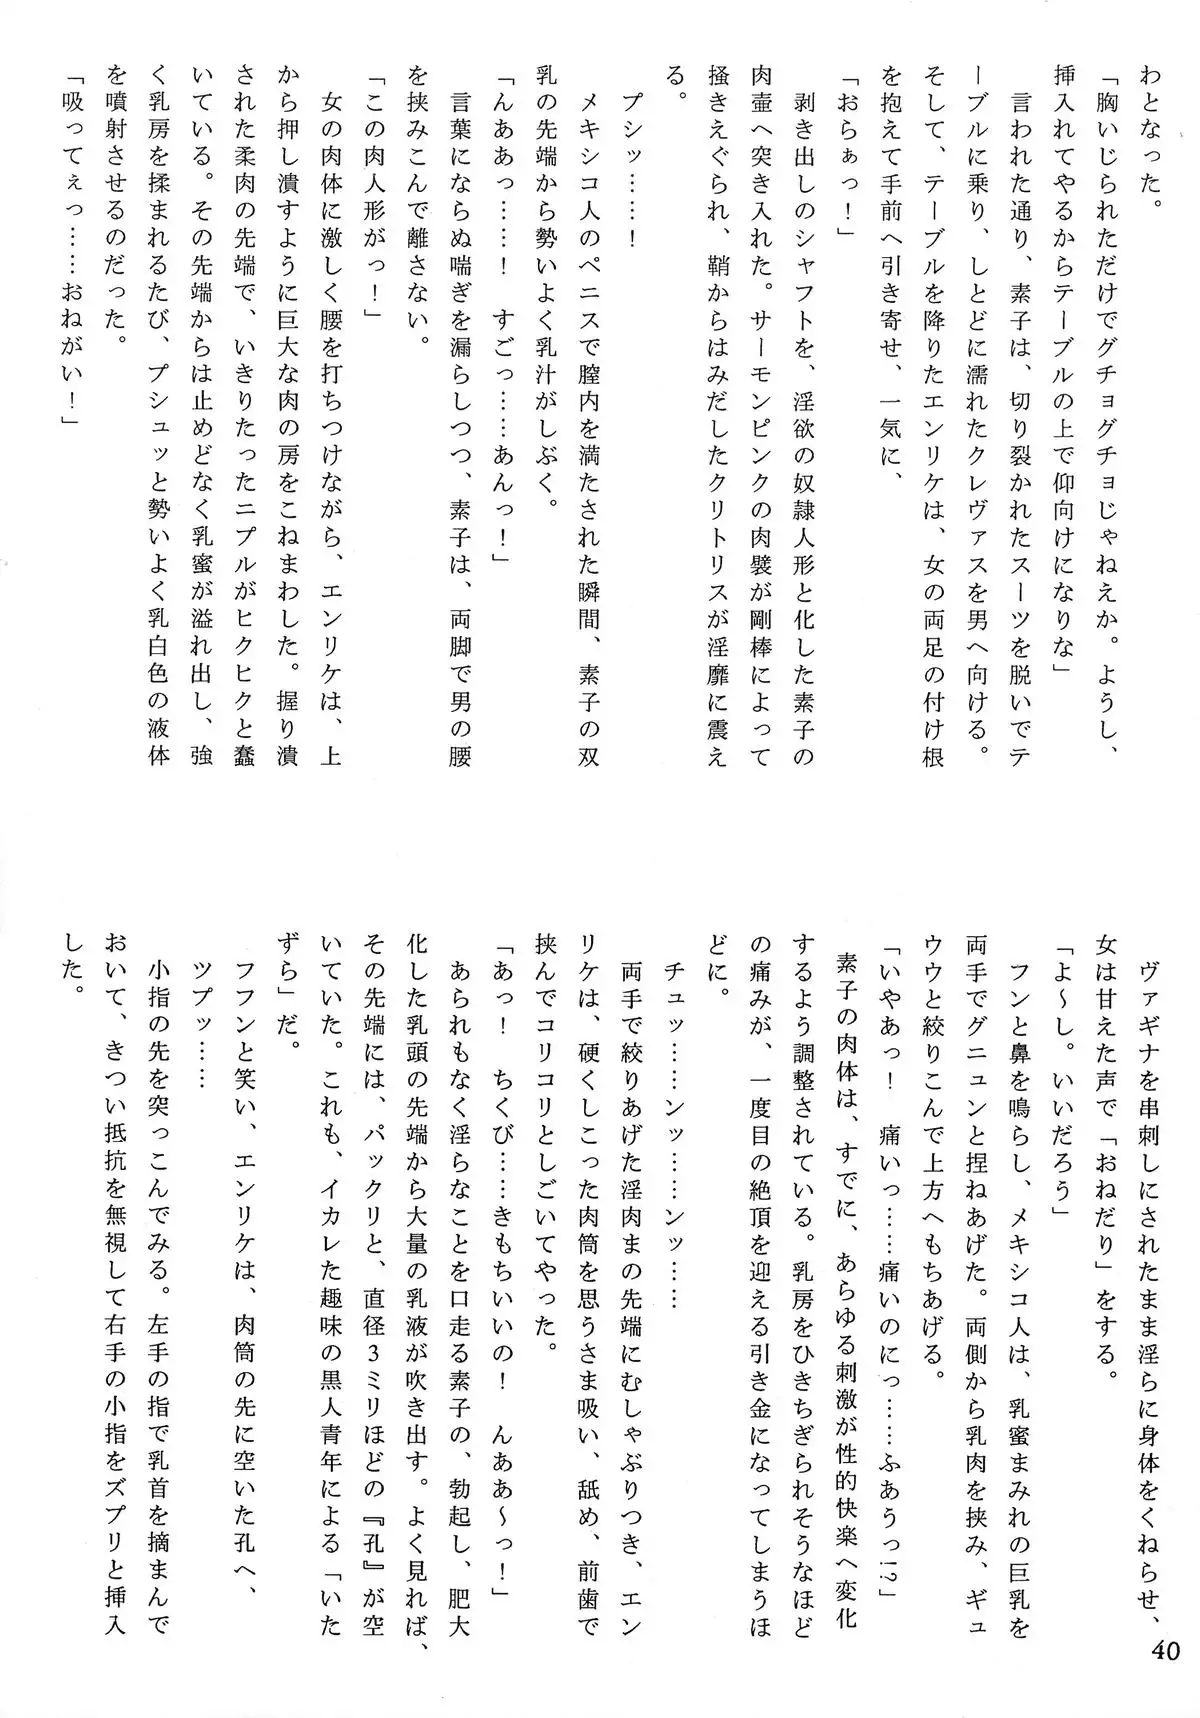 わとなった。
「胸いじられただけでグチョグチョじゃねえか。ようし、
挿入れてやるからテーブルの上で仰向けになりな」
言われた通り、素子は、切り裂かれたスーツを脱いでテ
ーブルに乗り、しとどに濡れたクレヴァスを男へ向ける。
そして、テーブルを降りたエンリケは、女の両足の付け根
を抱えて手前へ引き寄せ、一気に、
「おらぁっ！」
剥き出しのシャフトを、淫欲の奴隷人形と化した素子の
肉壺へ突き入れた。サーモンピンクの肉襞が剛棒によって
掻きえぐられ、鞘からはみだしたクリトリスが淫靡に震え
る。
プシッ……！
メキシコ人のペニスで膣内を満たされた瞬間、素子の双
乳の先端から勢いよく乳汁がしぶく。
「んああっ……！　すごっ……あんっ！」
言葉にならぬ喘ぎを漏らしつつ、素子は、両脚で男の腰
を挟みこんで離さない。
「この肉人形がっ！」
女の肉体に激しく腰を打ちつけながら、エンリケは、上
から押し潰すように巨大な肉の房をこねまわした。握り潰
された柔肉の先端で、いきりたったニプルがヒクヒクと蠢
いている。その先端からは止めどなく乳蜜が溢れ出し、強
く乳房を揉まれるたび、プシュッと勢いよく乳白色の液体
を噴射させるのだった。
「吸ってぇっ……おねがい！」
ヴァギナを串刺しにされたまま淫らに身体をくねらせ、
女は甘えた声で「おねだり」をする。
「よ～し。いいだろう」
フンと鼻を鳴らし、メキシコ人は、乳蜜まみれの巨乳を
両手でグニュンと捏ねあげた。両側から乳肉を挟み、ギュ
ウウと絞りこんで上方へもちあげる。
「いやあっ！　痛いっ……痛いのにっ……ふあうっ!?」
素子の肉体は、すでに、あらゆる刺激が性的快楽へ変化
するよう調整されている。乳房をひきちぎられそうなほど
の痛みが、一度目の絶頂を迎える引き金になってしまうほ
どに。
チュッ……ンッ……ンッ……
両手で絞りあげた淫肉まの先端にむしゃぶりつき、エン
リケは、硬くしこった肉筒を思うさま吸い、舐め、前歯で
挟んでコリコリとしごいてやった。
「あっ！　ちくび……きもちいいの！　んああ～っ！」
あられもなく淫らなことを口走る素子の、勃起し、肥大
化した乳頭の先端から大量の乳液が吹き出す。よく見れば、
その先端には、パックリと、直径３ミリほどの『孔』が空
いていた。これも、イカレた趣味の黒人青年による「いた
ずら」だ。
フフンと笑い、エンリケは、肉筒の先に空いた孔へ、
ツプッ……
小指の先を突っこんでみる。左手の指で乳首を摘まんで
おいて、きつい抵抗を無視して右手の小指をズプリと挿入
した。
40